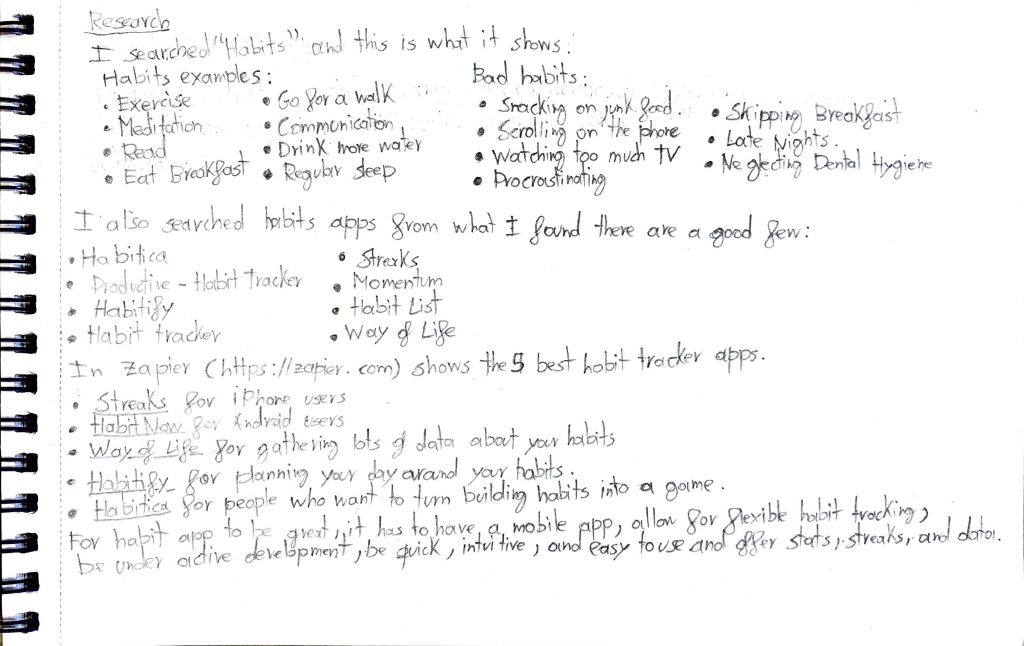 Research
I searched "Habits" and this is what it shows:
Habits examples:
• Exercise
• Meditation
• Read
• Eat Breakfast
• Go for a walk
• Communication
• Drink more water
• Regular sleep
Bad habits:
• Snacking on junk food.
• Scrolling on the phone
• Watching too much TV
• Procrastinating
• Skipping Breakfast
• Late Nights.
• Neglecting Dental Hygiene
I also searched habits apps from what I found there are a good few:
• Habitica
• Productive - Habit Tracker
• Habitify
• Habit tracker
• Streaks
• Momentum
• Habit List
• Way of Life
In Zapier (https://zapier.com) shows the 5 best habit tracker apps.
• Streaks for iPhone users
• Habit Now for Android users
• Way of Life for gathering lots of data about your habits
• Habitify for planning your day around your habits.
• Habitica for people who want to turn building habits into a game.
For habit app to be great, it has to have, a mobile app, allow for flexible habit tracking,
be under active development, be quick, intuitive, and easy to use and offer stats, streaks, and data.